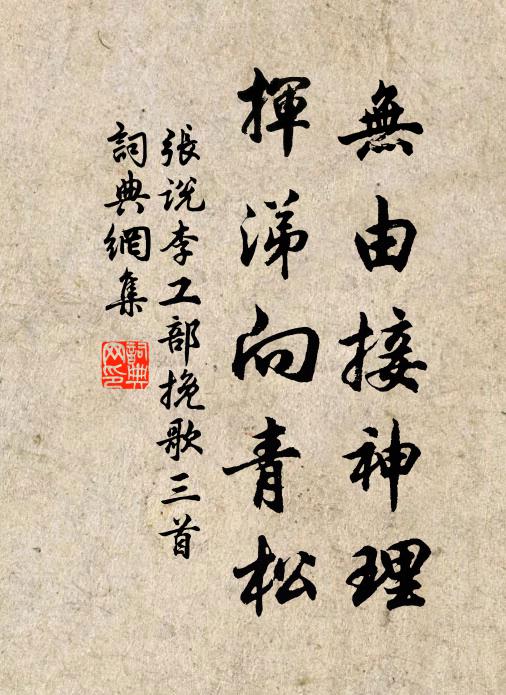 無由接神理
揮涕向青松
張説李工部挽歌三首
詞典網集
詞典
网印